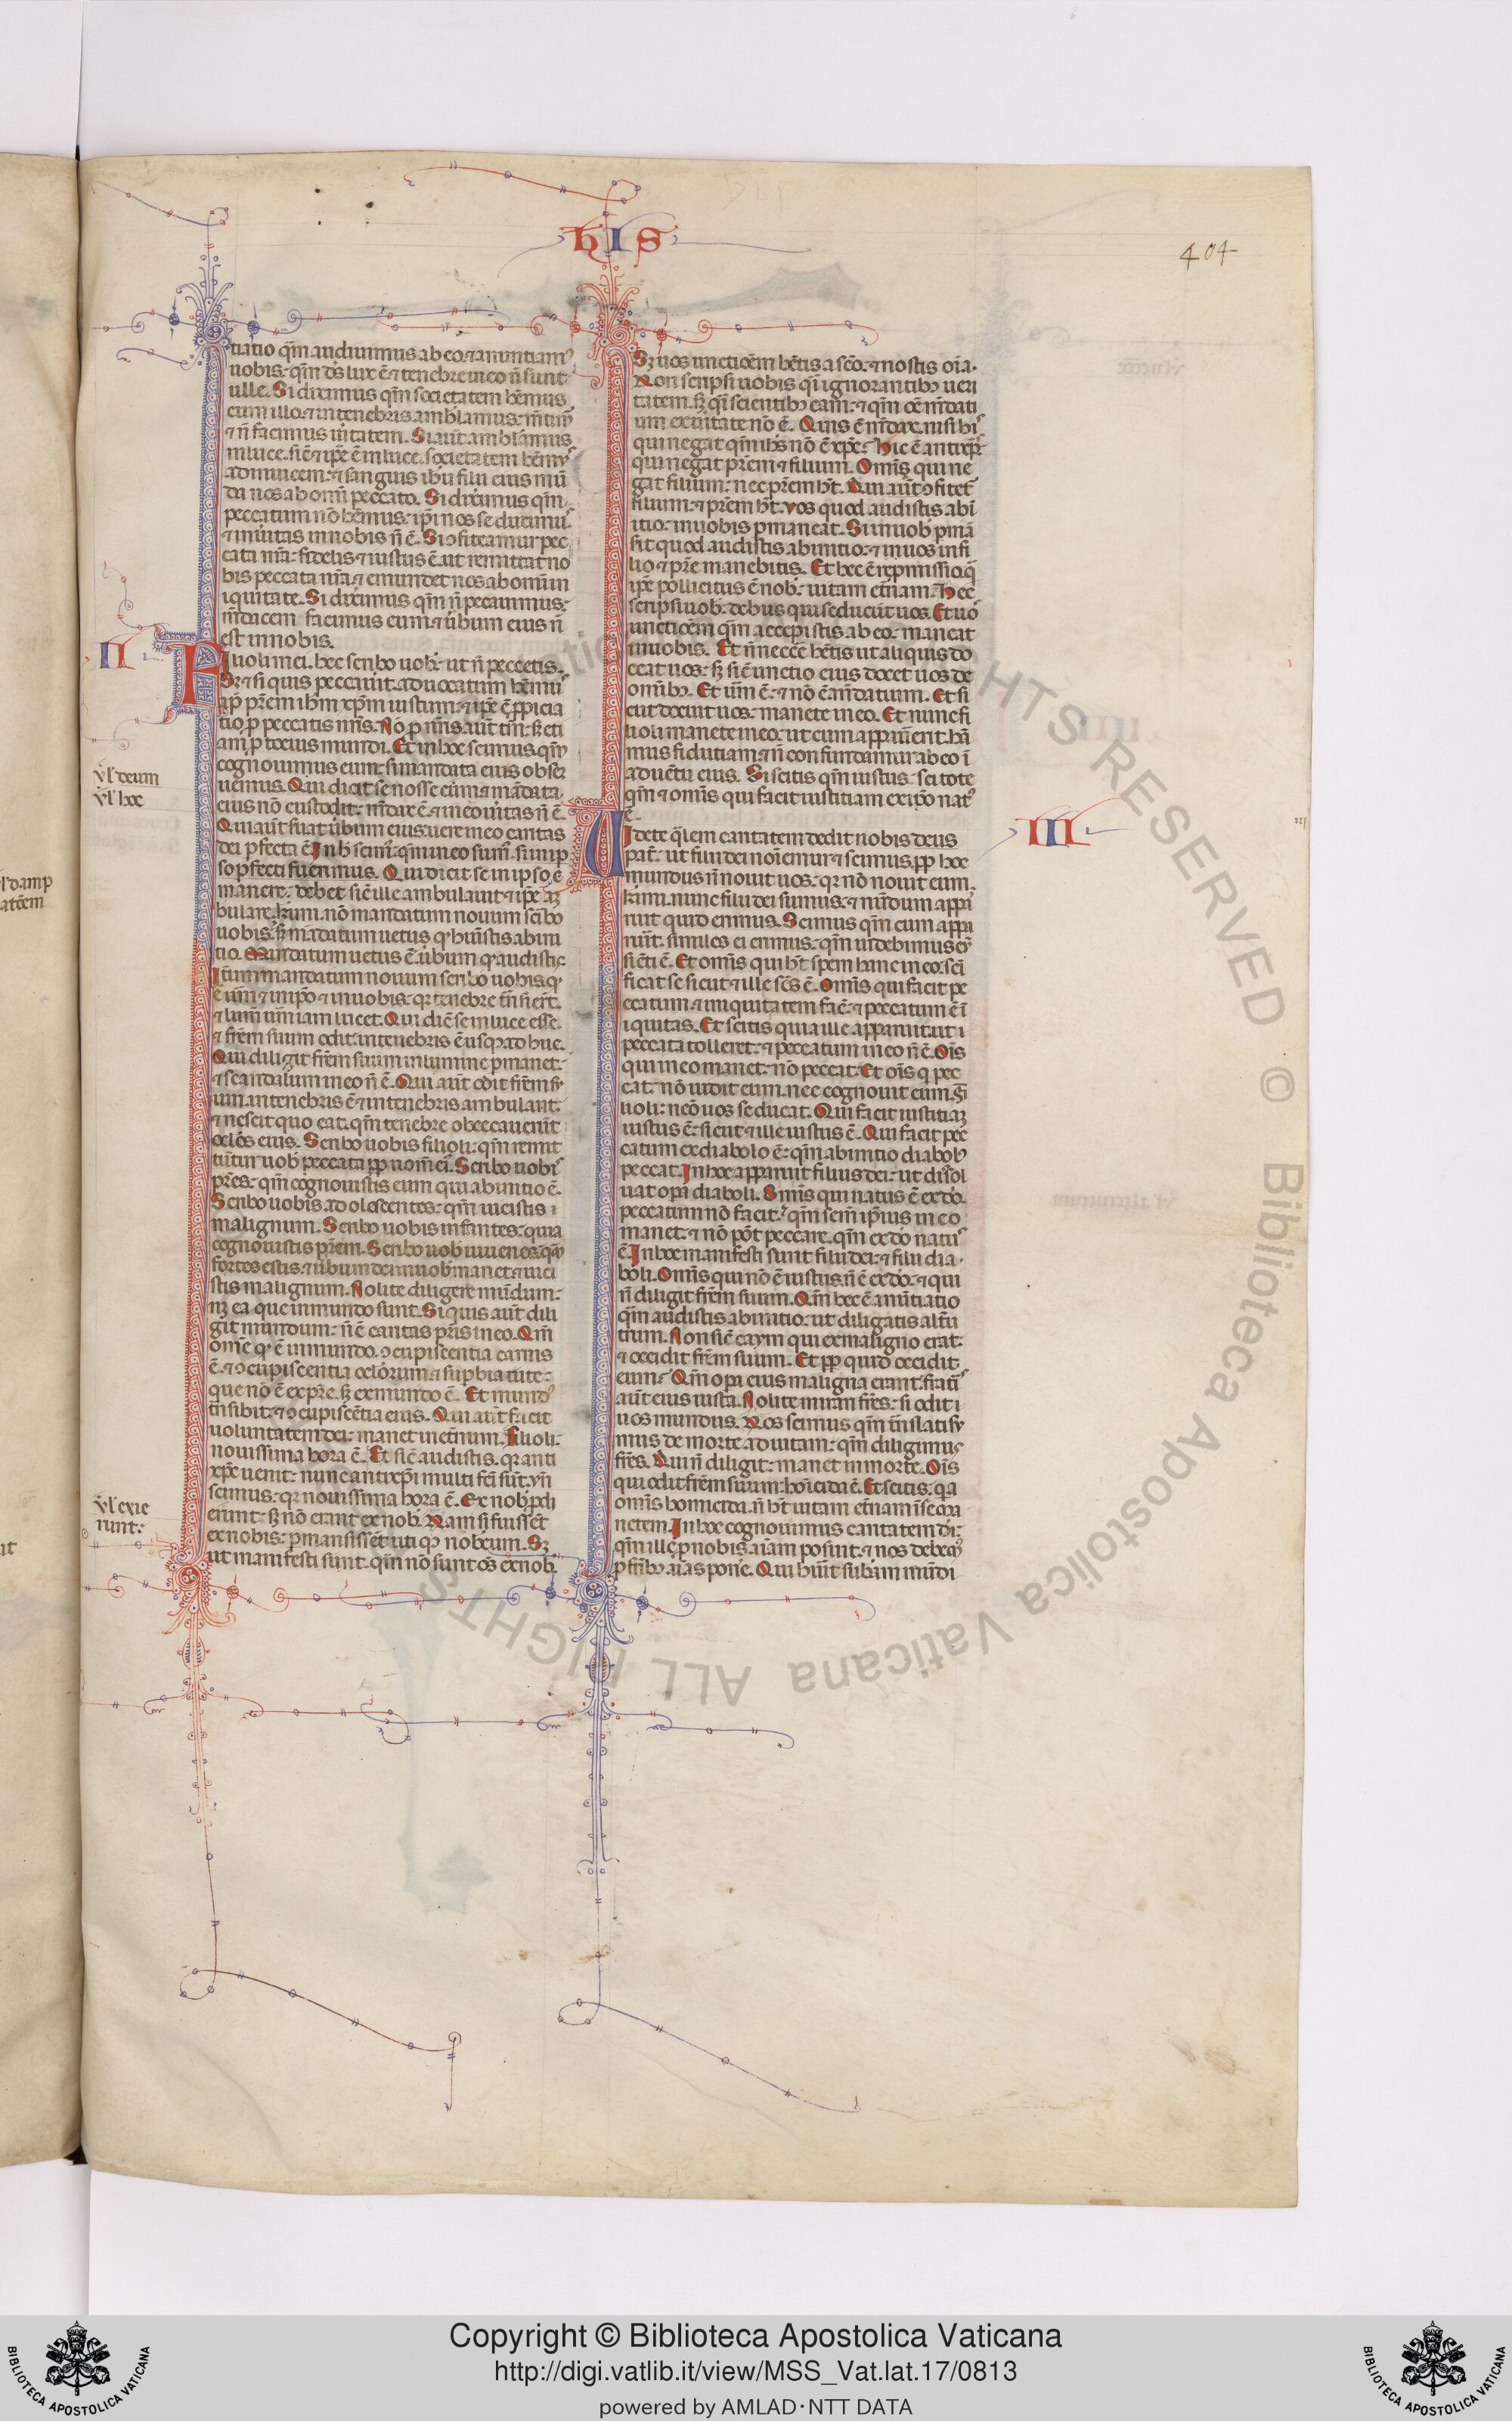 hIS
404
tiatio qm̄ audiuimus ab eo. ⁊ anuntiamꝰ
uobis. qm̄ ds̄ lux ē ⁊ tenebre in eo n̄ sunt
ulle. Si dixerimus qm̄ societatem hēmus
cum illo. ⁊ in tenebris amblamus: mētimꝰ
⁊ n̄ facimus ūitatem. Si aūt amblāmus
in luce. sic̄ ⁊ ip̄e ē in luce. societatem hēmꝰ
ad inuicem: ⁊ sanguis ih̄u filii eius mū
da nos ab omī peccato. Si dixerimus qm̄
peccatum nō hēmus: ip̄i nos seducimꝰ
⁊ ūitas in nobis n̄ ē. Si ꝯfiteamur pec
cata nr̄a: fidelis ⁊ iustus ē. ut remittat no
bis peccata nr̄a. ⁊ emundet nos ab omī in
iquitate. Si dixerimus qm̄ n̄ peccauimus:
m̄dacem facimus eum. ⁊ ūbum eius n̄
est in nobis.
II
Filioli mei. hec scribo uob̄. ut n̄ peccetis.
Sꝫ ⁊ si quis peccauit. aduocatum hēmꝰ
ap̄ pr̄em ih̄m xp̄m iustum: ⁊ ip̄e ē ꝓpicia
tio ꝓ peccatis nr̄is. Nō ꝓ nr̄is aūt tm̄: sꝫ eti
am ꝓ tocius mundi. Et in hoc scimus qm̄
cognouimus eum: si mandata eius obser
uemus. Qui dicit se nosse eum ⁊ mādata
eius nō custodit: m̄dax ē ⁊ in eo ūitas n̄ ē.
ul̄ deum
ul̄ hoc
Qui aūt ſuat ūbum eius. uere in eo caritas
dei ꝑfecta ē. In h̄ scimꝰ. qm̄ in eo sumꝰ. si in ip
so ꝑfecti fuerimus. Qui dicit se in ipso ē
manere: debet sic̄ ille ambulauit ⁊ ip̄e aꝫ
bulare. k̄imi. nō mandatum nouum scibo
uobis. sꝫ mādatum uetus qꝰ huistis ab ini
tio. Mandatum uetus ē. ūbum qꝰ audistis.
Itūm mandatum nouum scribo uobis qꝰ
ē uūm ⁊ in ip̄o ⁊ in uobis: qꝛ tenebre tn̄sierūt.
⁊ lum̄ uūm iam lucet. Qui dic̄ se in luce esse.
⁊ fr̄em suum odit: in tenebris ē usqꝫ adhuc.
Qui diligit fr̄em suum in lumine ꝑmanet:
⁊ scandalum in eo n̄ ē. Qui aūt odit fr̄em su
um. in tenebris ē ⁊ in tenebris ambulat:
⁊ nescit quo eat. qm̄ tenebre obcecauerūt
oclo̅s eius. Scribo uobis filioli: qm̄ remit
tūtur uob̄ peccata ꝓp nom̄ eiꝰ. Scribo uobis
pr̄es: qm̄ cognouistis eum qui ab initio ē.
Scribo uobis adolescentes: qm̄ uicistis
malignum. Scribo uobis infantes: quia
cognouistis pr̄em. Scribo uob̄ iuuenes: qm̄
fortes estis. ⁊ ūbum dei in uob̄ manet ⁊ uici
stis malignum. Nolite diligere mūdum:
nꝫ ea que in mundo sunt. Si quis aūt dili
git mundum: n̄ ē caritas pr̄is in eo. Qm̄
om̄e qꝰ ē in mundo. ꝯcupiscentia carnis
ē. ⁊ ꝯcupiscentia oclo̅rum ⁊ suꝑbia uite:
que nō ē ex pr̄e. sꝫ ex mundo ē. Et mundꝰ
tn̄sibit ⁊ ꝯcupiscētia eius. Qui aūt facit
uoluntatem dei: manet in et̄num. Filioli:
nouissima hora ē. Et sic̄ audistis. qꝛ anti
xp̄c uenit: nunc antixp̄i multi fc̄i sūt. ūn̄
scimus: qꝛ nouissima hora ē. Ex nob̄ ꝓdi
erunt: sꝫ nō erant ex nob̄. Nam si fuissēt
ex nobis: ꝑmansissēt uti qꝫ nobcum. Sꝫ
ut manifesti sunt. qm̄ nō sunt om̄s ex nob̄.
ul̄ exie
runt:
Sꝫ uos unctioēm hētis a scō. ⁊ nostis oīa.
Non scripsi uobis qi ignorantibꝫ ueri
tatem. sꝫ qi scientibꝫ eam: ⁊ qm̄ oē m̄dati
um ex ūitate nō ē. Quis ē m̄dax. nisi his
qui negat qm̄ ih̄s nō ē xp̄c? Hic ē antixp̄c
qui negat pr̄em ⁊ filium. Omīs qui ne
gat filium: nec pr̄em h̄t. Qui aūt ꝯfitet᷑
filium: ⁊ pr̄em h̄t. Vos quod audistis ab in
itio: in uobis ꝑmaneat. Si in uob̄ ꝑmā
sit quod audistis ab initio: ⁊ in uos in fi
lio ⁊ pr̄e manebitis. Et hec ē reꝓmissio. q̄
ip̄e pollicitus ē nob̄. uitam et̄nam. Hec
scripsi uob̄. de hiis qui seducūt uos. Et uo
unctioēm qm̄ accepistis ab eo: maneat
in uobis. Et n̄ necc̄e hētis ut aliquis do
ceat uos: sꝫ sic̄ unctio eius docet uos de
omībꝫ. Et uūm ē: ⁊ nō ē m̄datium. Et si
cut docuit uos: manete in eo. Et nunc fi
lioli manete in eo: ut cum apparūerit. hā
mus fidutiam: ⁊ n̄ confundamur ab eo ī
aduētu eius. Si scitis qm̄ iustus: scitote
qm̄ ⁊ omīs qui facit iustitiam ex ip̄o natꝰ
ē.
III
Uidete q̄lem caritatem dedit nobis deus
pat᷑: ut filii dei noīemur ⁊ scimus. ꝓp hoc
mundus n̄ nouit uos: qꝛ nō nouit eum.
k̄imi. nunc filii dei sumus: ⁊ nūdum appa
ruit quid erimus. Scimus qm̄ cum appa
ruūit. similes ei erimus: qm̄ uidebimus eū
sic̄ti ē. Et omīs qui h̄t spem hanc in eo: sci
ficat se sicut ⁊ ille scs̄ ē. Omīs qui facit pe
ccatum: ⁊ iniquitatem fac̄. ⁊ peccatum ē ī
iquitas. Et scitis quia ille apparuit ut
peccata tolleret: ⁊ peccatum in eo n̄ ē. Oīs
qui in eo manet: nō peccat: Et oīs q̄ pec
cat: nō uidit eum. nec cognouit eum. Fi
lioli: neō uos seducat. Qui facit iustitiaꝫ
iustus ē: sicut ⁊ ille iustus ē. Qui facit pec
catum ex diabolo ē: qm̄ ab initio diabolꝰ
peccat. In hoc apparuit filius dei: ut dissol
uat opa diaboli. Omīs qui natus ē ex dō.
peccatum nō facit: qm̄ sem̄ ip̄ius in eo
manet: ⁊ nō pōt peccare. qm̄ ex dō natus
ē. In hoc manifesti sunt filii dei: ⁊ filii dia
boli. Omīs qui nō ē iustus. n̄ ē ex dō: ⁊ qui
n̄ diligit fr̄em suum. Qm̄ hec ē anūtiatio
qm̄ audistis ab initio: ut diligatis altū
trum. Non sic̄ caym qui ex maligno erat:
⁊ occidit fr̄em suum. Et ꝓp quid occidit
eum? Qm̄ opa eius maligna erant: fratis
aūt eius iusta. Nolite mirari fr̄es: si odit
uos mundus. Nos scimus qm̄ tn̄slati su
mus de morte ad uitam: qm̄ diligimus
fr̄es. Qui n̄ diligit: manet in morte. Oīs
qui odit fr̄em suum: homicida ē. Et scitis: qa
omīs homicida. n̄ h̄t uitam et̄nam ī se ma
netem. In hoc cognouimus caritatem dei:
qm̄ ille ꝓ nobis aīam posuit: ⁊ nos debemꝰ
ꝓ fr̄ibꝫ aīas ponē. Qui hūit subām mūdi
Copyright © Biblioteca Apostolica Vaticana
http://digi.vatlib.it/view/MSS_Vat.lat.17/0813
powered by AMLAD · NTT DATA
BIBLIOTECA APOSTOLICA VATICANA
BIBLIOTECA APOSTOLICA VATICANA